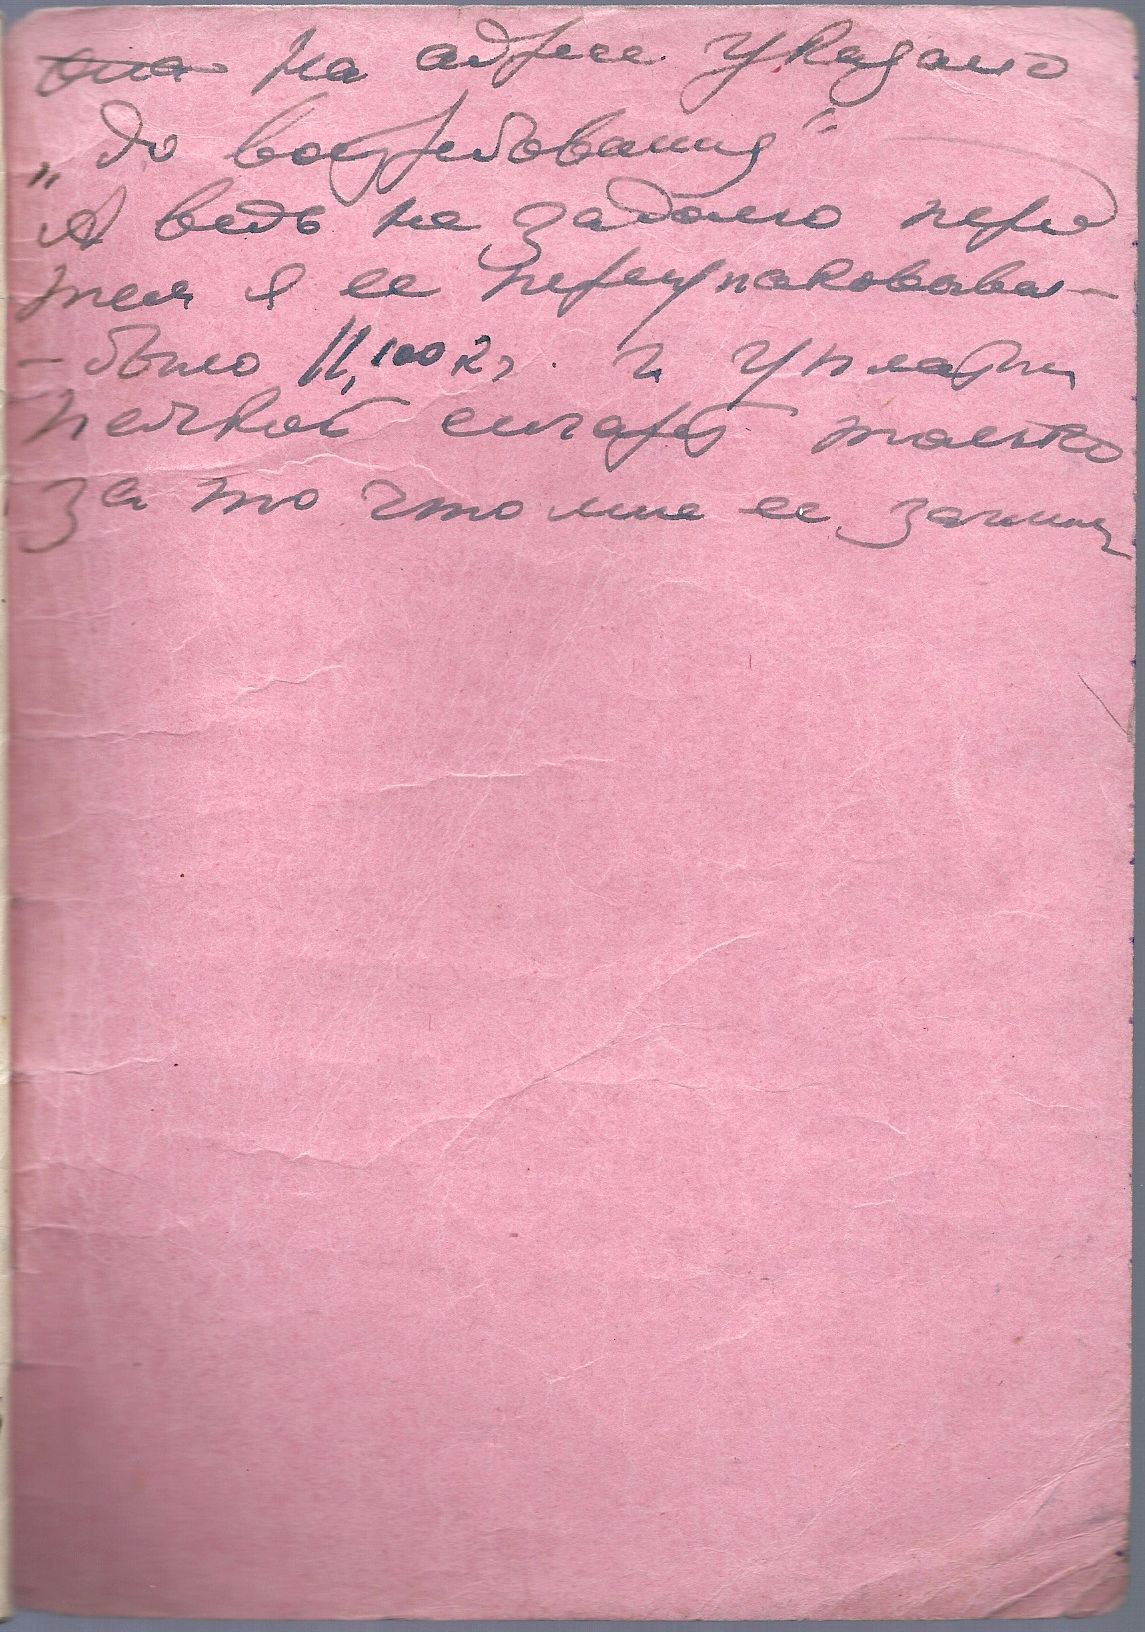 на адрес указано
„до востребования“
А ведь не задолго перед
тем я ее переупаковывал—
— было 11,100 кг. и уплатил
пачкой сигарет только
за то что мне ее зашили